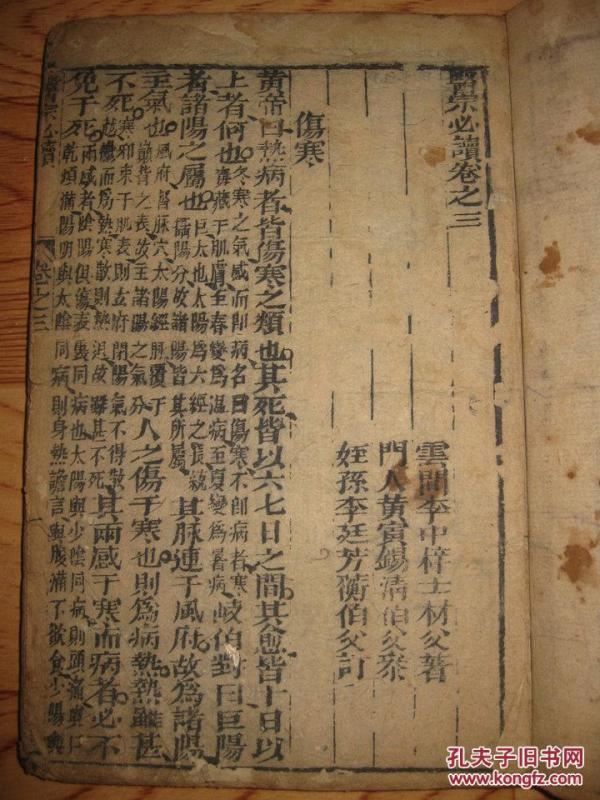 醫宗必讀卷之三
雲間李中梓士材父著
門人黃寅錫清伯父叅
姪孫李廷芳蘅伯父訂
傷寒
黃帝曰熱病者皆傷寒之類也其死皆以六七日之間其愈皆十日以
上者何也冬寒之氣感而卽病名曰傷寒不卽病者寒毒藏于肌膚至春變爲溫病至夏變爲暑病岐伯對曰巨陽
者諸陽之屬也巨太也太陽爲六經之長統攝陽分故諸陽皆其所屬其脉連于風府故爲諸陽
主氣也風府督脉穴太陽經脉覆于巔背之表故主諸陽之氣分人之傷于寒也則爲病熱熱雖甚
不死寒邪束于肌表則玄府閉陽氣不得散越鬱而爲熱寒散則熱退故雖甚不死其兩感于寒而病者必不
免于死兩感者陰陽俱傷表裏同病也太陽與少陰同病則頭痛與口乾煩滿陽明與太陰同病則身熱譫言與腹滿不欲食少陽與
醫宗必讀 卷之三
孔夫子旧书网
www.kongfz.com